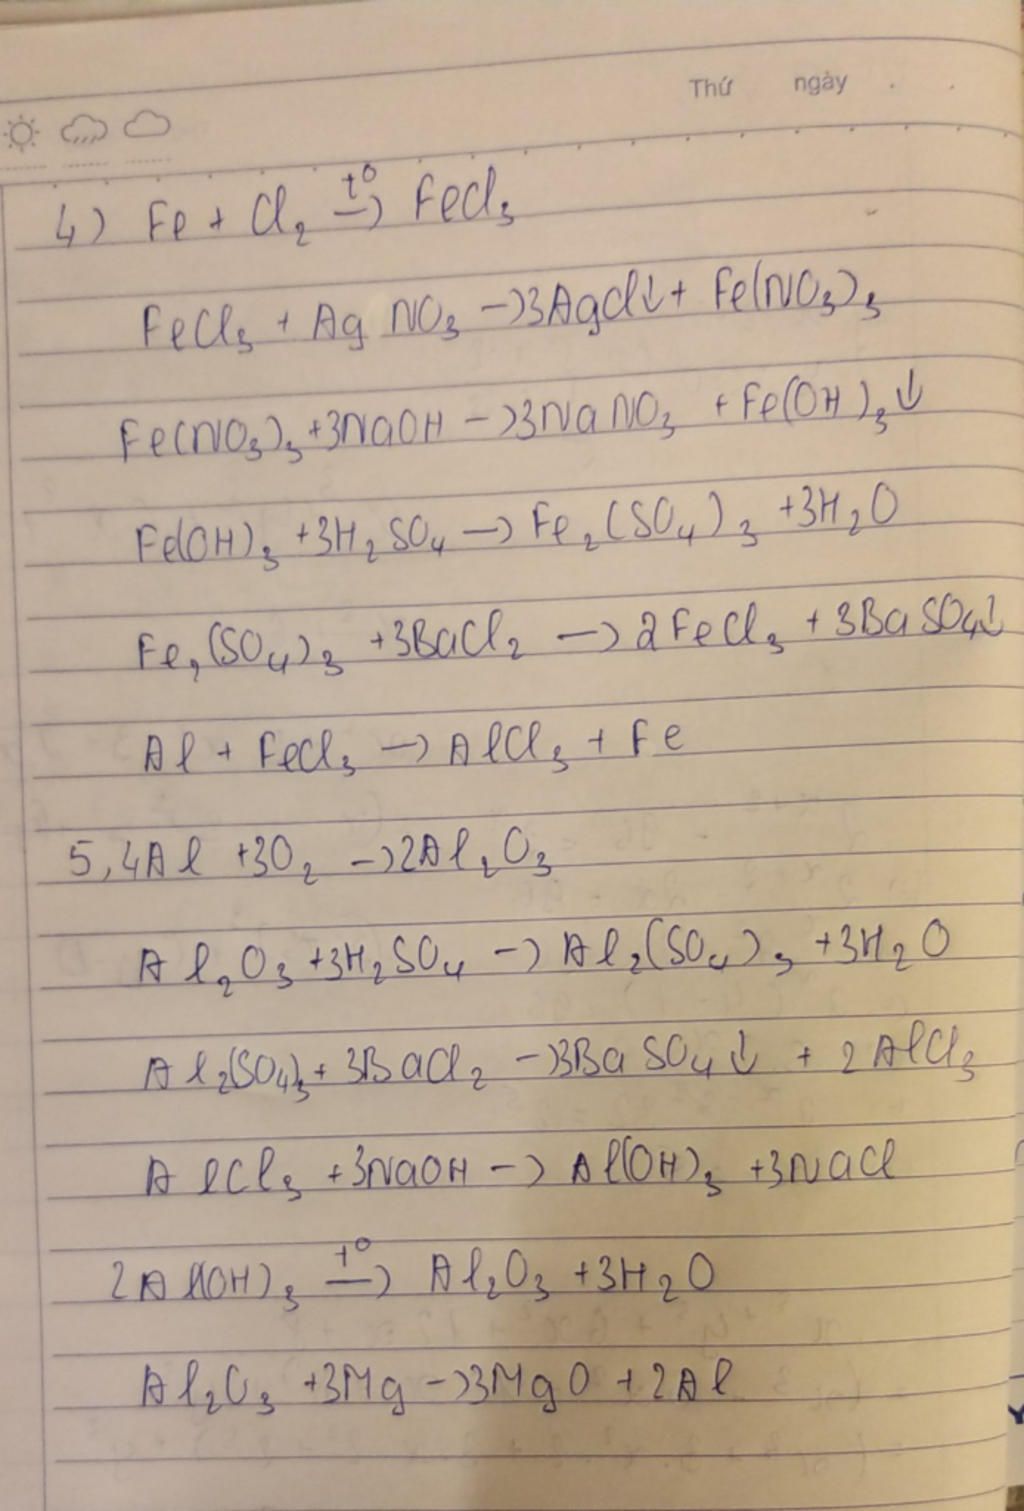 Thứ ngày
4) Fe + Cl₂ t° → FeCl₃
FeCl₃ + AgNO₃ → 3AgCl↓ + Fe(NO₃)₃
Fe(NO₃)₃ + 3NaOH → 3NaNO₃ + Fe(OH)₃↓
Fe(OH)₃ + 3H₂SO₄ → Fe₂(SO₄)₃ + 3H₂O
Fe₂(SO₄)₃ + 3BaCl₂ → 2FeCl₃ + 3BaSO₄↓
Al + FeCl₃ → AlCl₃ + Fe
5, 4Al + 3O₂ → 2Al₂O₃
Al₂O₃ + 3H₂SO₄ → Al₂(SO₄)₃ + 3H₂O
Al₂(SO₄)₃ + 3BaCl₂ → 3BaSO₄↓ + 2AlCl₃
AlCl₃ + 3NaOH → Al(OH)₃ + 3NaCl
2Al(OH)₃ t° → Al₂O₃ + 3H₂O
Al₂O₃ + 3Mg → 3MgO + 2Al